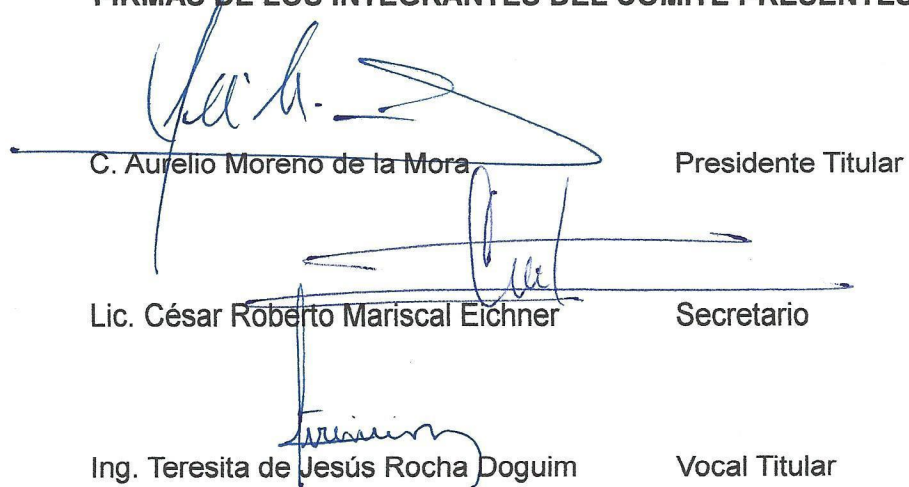 FIRMAS DE LOS INTEGRANTES DEL COMITÉ PRESENTES
C. Aurelio Moreno de la Mora Presidente Titular
Lic. César Roberto Mariscal Eichner Secretario
Ing. Teresita de Jesús Rocha Doguim Vocal Titular